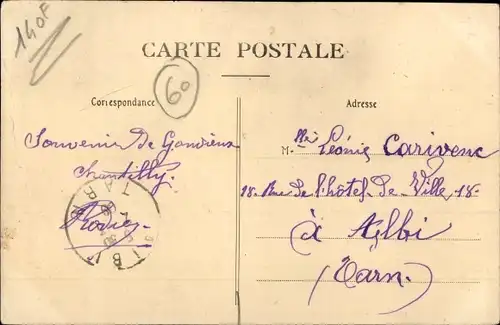 140F
CARTE POSTALE
60
Correspondance
Adresse
Souvenir de Gouvieux
Chantilly.
M lle Léonie Carivenc
18 Rue de l'hôtel de Ville, 18
à Albi
(Tarn.)
ALBI
TARN